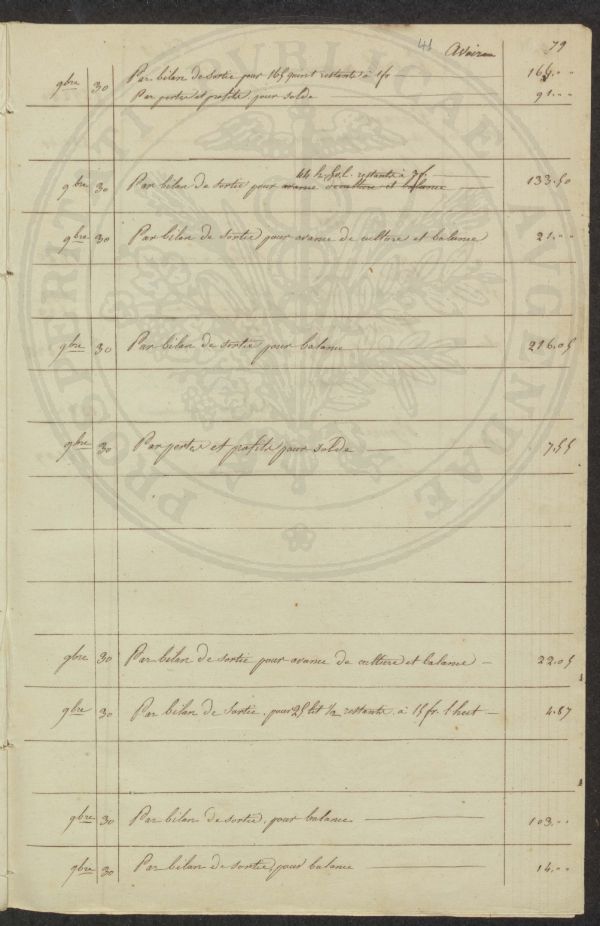 41 Avoir 79
9bre 30 Par bilan de sortie pour 165 quint restants à 1fr 165.--
Par pertes et profits pour solde 91.--
44 h. 50 l. restants à 3f.
9bre 30 Par bilan de sortie pour avance de culture et balance 133.50
9bre 30 Par bilan de sortie pour avance de culture et balance 21.--
9bre 30 Par bilan de sortie pour balance 216.05
9bre 30 Par pertes et profits pour solde 7.55
9bre 30 Par bilan de sortie pour avance de culture et balance 22.05
9bre 30 Par bilan de sortie pour 25 lit 1/2 restants à 15 fr. l'hect 4.87
9bre 30 Par bilan de sortie pour balance 103.--
9bre 30 Par bilan de sortie pour balance 14.--
PROSPERITATI PUBLICAE AUGENDAE